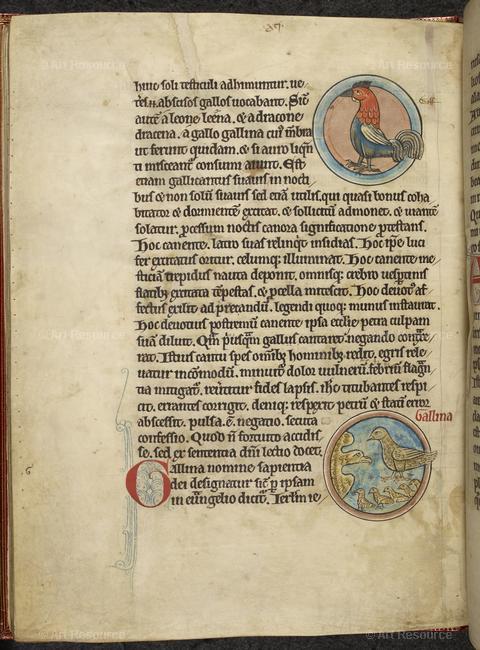 huic soli testiculi adhimuntur. ve
teres .n. abscisos gallos uocabant. Sic̄
aute᷑ a leone leena. ⁊ a dracone
dracena. a gallo gallina cui᷒ mēbra
ut ferunt quidam. ⁊ si auro liq̄n
ti misceant᷑ consumi aiunt. Est
etiam gallicantus suauis in nocti
bus ⁊ non solū suauis sed etiā utilis. qui quasi bonus coha
bitator ⁊ dormientē excitat. ⁊ sollicitū admonet. ⁊ uiantē
solatur. ꝓcessum noctis canora significatione ꝓtestans.
Hoc canente. latro suas relinq̄t insidias. Hoc ip̄e luci
fer excitatus oritur. celumq; illuminat. Hoc canente me
sticiā trepidus nauta deponit. omnisq; crebro uesꝑtinis
flatib; excitata tēpestas. ⁊ ꝓcella mitescit. Hoc deuot᷒ af
fectus exilit ad p̄candū. legendi quoq; munus instaurat.
Hoc deuotius postremū canente ipsa eccl̄ie petra culpam
suā diluit. Quā p̄usquā gallus cantaret negando contx̄e
rat. Istius cantu spes omib; hominib; redit. egris rele
uatur incōmodū. minuit᷑ dolor uulnerū. febriū flagrā
tia mitigat᷑. reuertitur fides lapsis. ih̄c titubantes respi
cit. errantes corrigit. deniq; respexit petrū ⁊ statī error
abscessit. pulsa .ē. negatio. secuta
confessio. Quod n̄ fortuito accidis
se. sed ex sententia dn̄i lectio docet.
Gallina
Gallina nomine sapientia
dei designatur sic̄ ꝑ ipsam
in eūngelio dicit᷑. Ierl̄m ie
© Art Resource